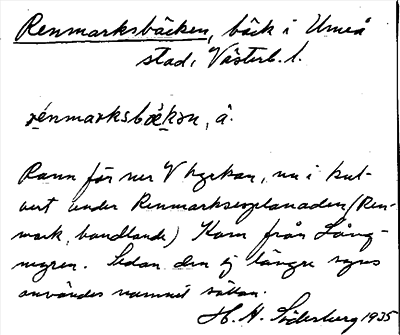 Renmarksbäcken, bäck i Umeå
stad, Västerb. l.
rénmarksbækɘn, å.
Rann för ner V kyrkan, nu i kul-
vert under Renmarksesplanaden (Ren-
mark, handlande) Kom från Lång-
myren. Sedan den ej längre syns
användes namnet sällan.
H. H. Söderberg 1935